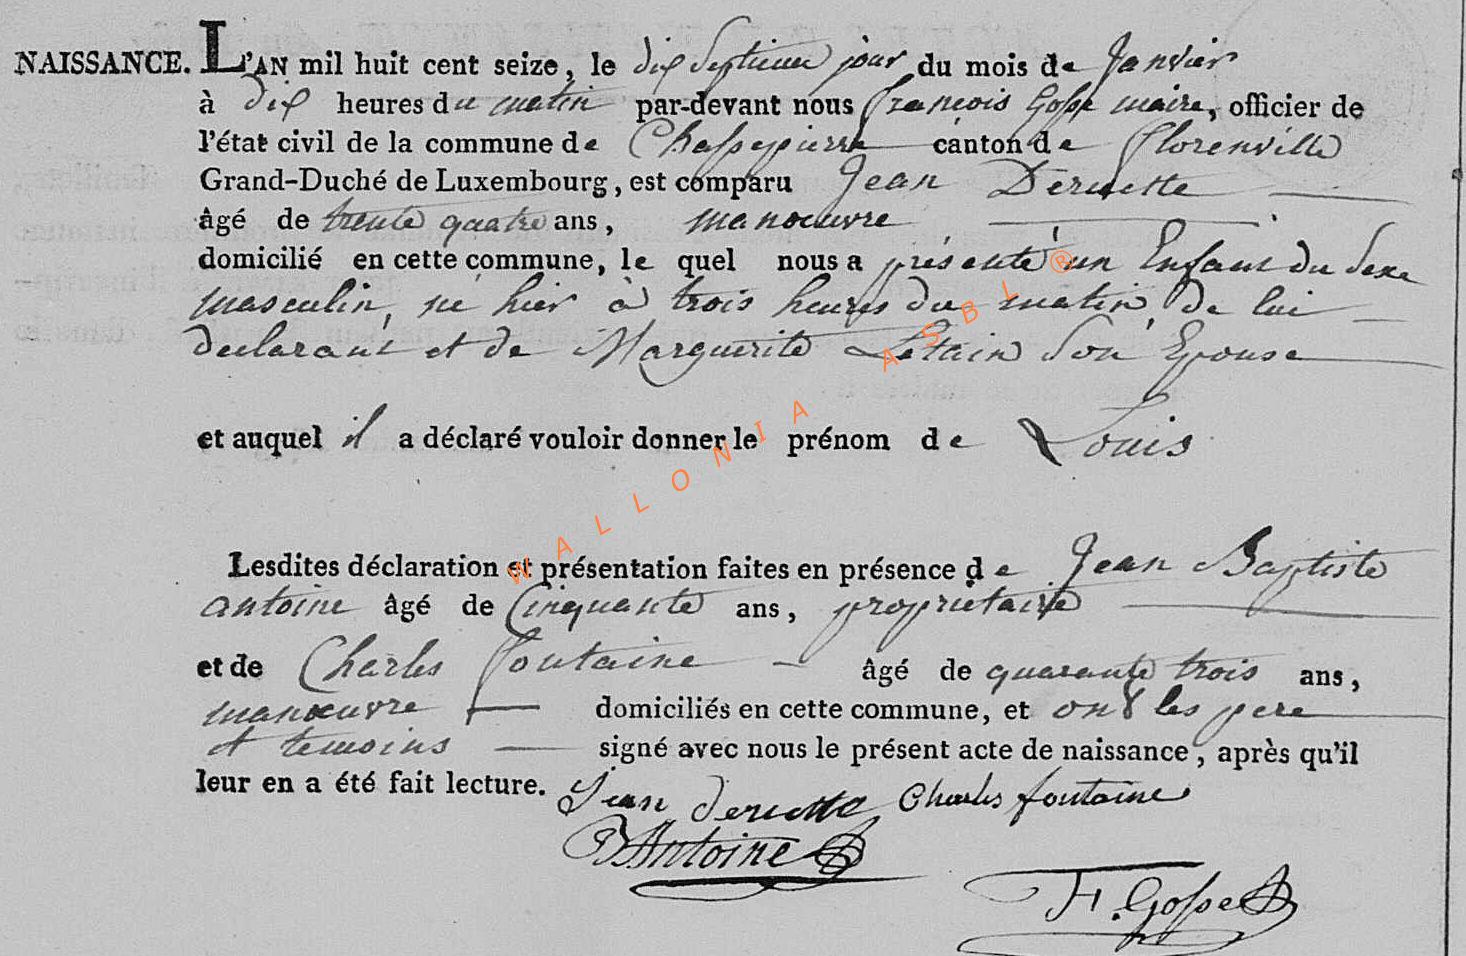 NAISSANCE. L'AN mil huit cent seize, le dix septieme jour du mois de Janvier
à dix heures du matin par-devant nous françois Gosse maire, officier de
l'état civil de la commune de Chassepierre canton de Florenville
Grand-Duché de Luxembourg, est comparu Jean
âgé de trente quatre ans, manoeuvre
domicilié en cette commune, le quel nous a présenté un Enfant du Sexe
masculin, né hier à trois heures du matin, de lui
declarant et de Marguerite Son Epouse
et auquel il a déclaré vouloir donner le prénom de Louis
Lesdites déclaration et présentation faites en présence de Jean Baptiste
antoine âgé de Cinquante ans, propriétaire
et de Charles fontaine âgé de quarante trois ans,
manoeuvre domiciliés en cette commune, et ont les pere
et temoins signé avec nous le présent acte de naissance, après qu'il
leur en a été fait lecture. Jean Charles fontaine
Antoine
F. Gosse
WALLONIA ASBL ®